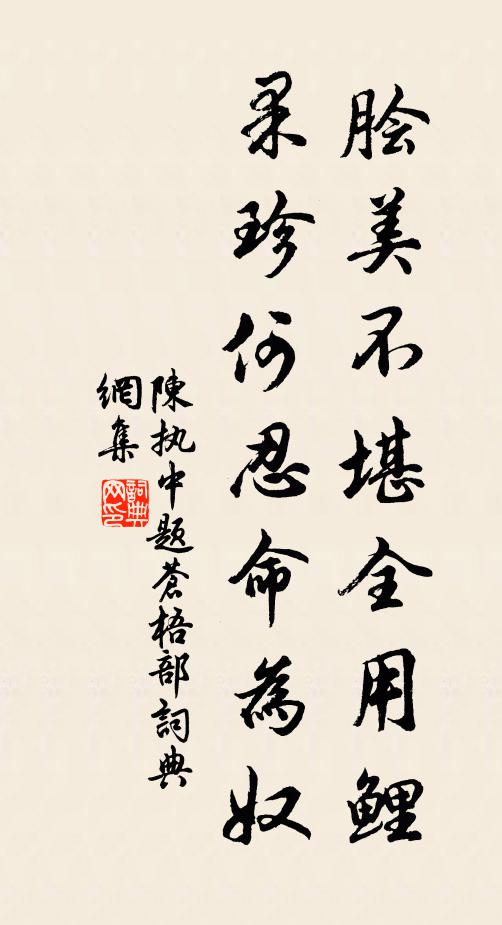 脍美不堪全用鲤
果珍何忍命為奴
陳执中题蒼梧部詞典
網集
詞典网印